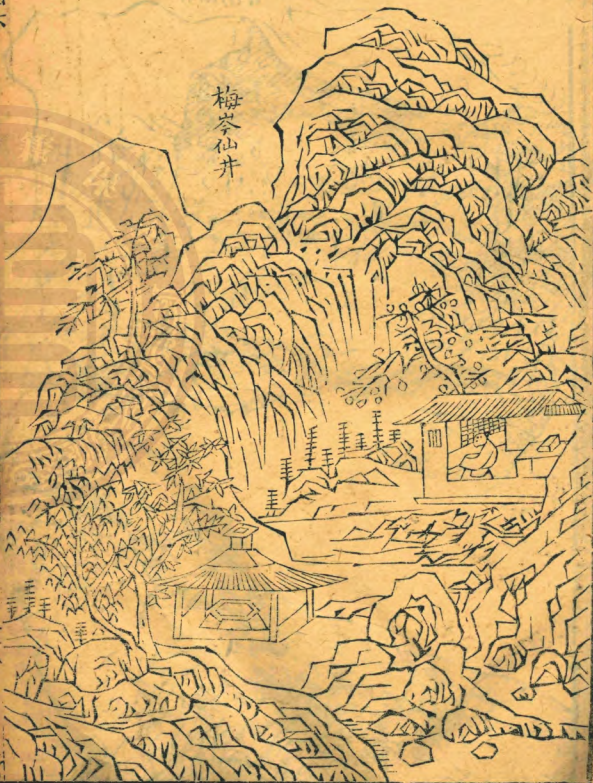 梅岑仙井